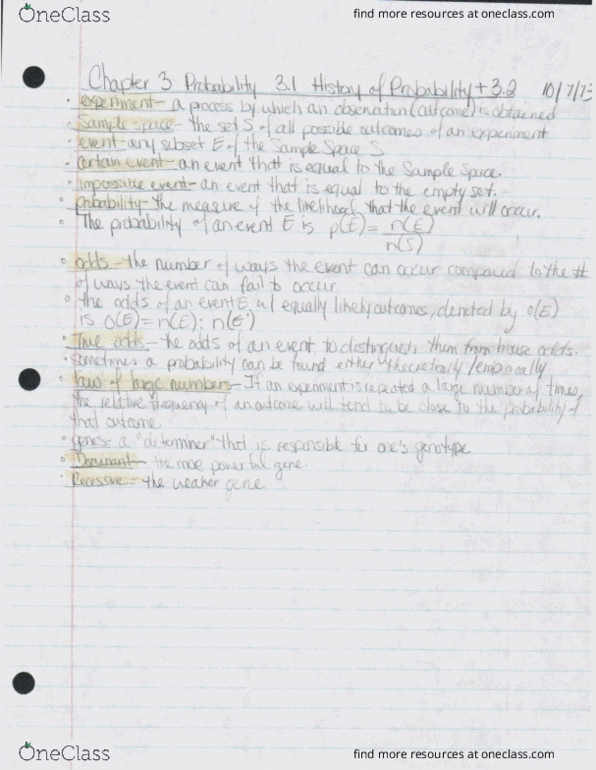 OneClass
find more resources at oneclass.com
Chapter 3 Probability 3.1 History of Probability + 3.2 10/7/13
• experiment - a process by which an observation (outcome) is obtained
• Sample space - the set S of all possible outcomes of an experiment
• event - any subset E of the Sample Space S
• certain event - an event that is equal to the Sample Space.
• impossible event - an event that is equal to the empty set.
• probability - the measure of the likelihood that the event will occur.
• The probability of an event E is p(E) = n(E)/n(S)
• odds - the number of ways the event can occur compared to the #
of ways the event can fail to occur.
• the odds of an event E w/ equally likely outcomes, denoted by o(E)
is o(E) = n(E): n(E')
• True odds - the odds of an event to distinguish them from house odds.
• sometimes a probability can be found either theoretically/empirically
• law of large numbers - If an experiment is repeated a large number of times,
the relative frequency of an outcome will tend to be close to the probability of
that outcome.
• genes - a "determiner" that is responsible for one's genotype
• Dominant - the more powerful gene.
• Recessive - the weaker gene.
OneClass
find more resources at oneclass.com